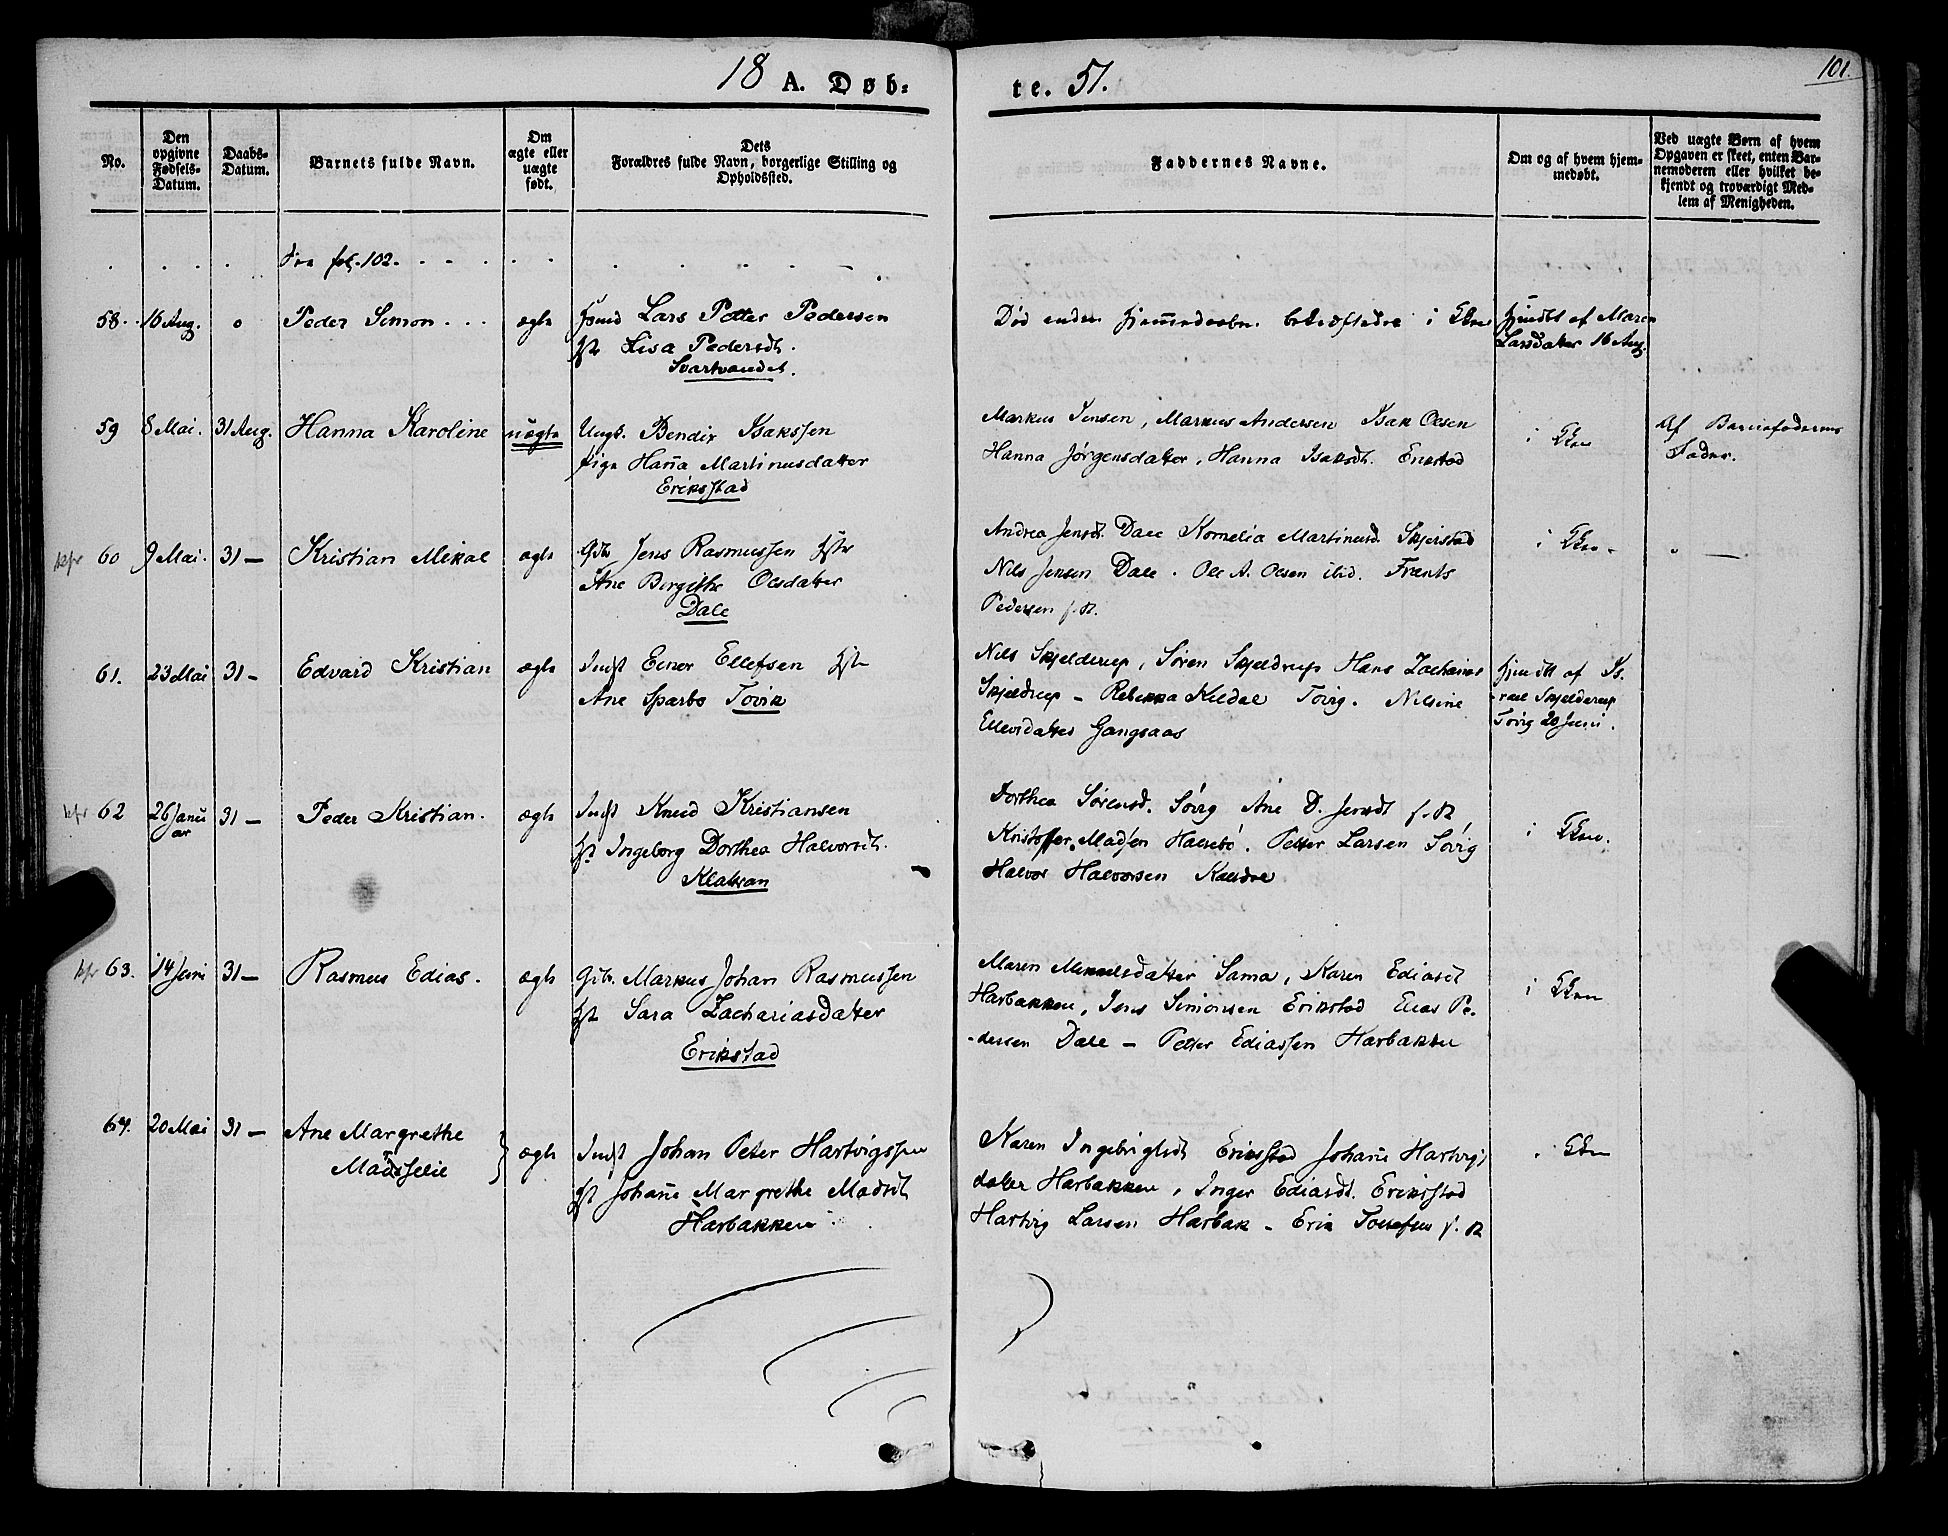 18 A. Døb: te. 51.
101.
No.
Den opgivne Fødsels-Datum.
Daabs-Datum.
Barnets fulde Navn.
Om ægte eller uægte født.
Dets Forældres fulde Navn, borgerlige Stilling og Opholdssted.
Faddernes Navne.
Om og af hvem hjemmedøbt.
Ved uægte Børn af hvem Opgaven er skeet, enten Barnemoderen eller hvilket bekjendt og troværdigt Medlem af Menigheden.
fol. 102.
58. 16 Aug. Peder Simon ægte
Lars Petter Pedersen
Lisa Pedersdt.
Svartvandet.
Død i
hjmdbt af Maren
Larsdatter 16 Aug.
59 8 Mai. 31 Aug. Hanna Karoline uægte
Ungk. Bendix Isakssen
Pige Hana Martinusdatter
Eriksstad
Markus Jensen, Markus Andersen Isak Olsen
Hanna Jørgensdatter, Hanna Isaksdt. Erikstad
i
Af Barnefaderens
Fader.
kfr 60 9 Mai. 31 — Kristian Mikal ægte
Gbr Jens Rasmussen Hst
Ane Birgithe Olsdatter
Dale
Andrea Jensdt. Dale Kornelia Martinusd. Skjerstad
Nils Jensen Dale. Ole A. Olsen ibid. Frants
Pedersen
i
61. 23 Mai 31 — Edvard Kristian ægte
Indst Einer Ellefsen Hst
Ane Sparbo Tovik
Nils Skjelderup, Søren Skjeldrup Hans Zacharias
Skjeldrup — Rebekka Kildal Tovig. Nilsine
Ellevsdatter Gangsaas
hjmdbt af Is-
rael Skjelderup
Tovig 20 Juni.
kfr 62 26 Janu
ar 31 — Peder Kristian. ægte
Indst Knud Kristiansen
Hst Ingeborg Dorthea Halvorsdt.
Klakran
Dorthea Sørensd. Søvig Ane D. Jensdt
Kristoffer Madsen Halsebø. Petter Larsen Søvig
Halvor Halvorsen
i
kfr 63. 14 Juni 31 — Rasmus Edias. ægte
Gbr. Markus Johan Rasmussen
Hst Sara Zachariasdatter
Erikstad
Maren Mikkelsdatter Sama, Karen Ediasdt
Harbakken, Jens Simonsen Erikstad Elias Pe-
-dersen Dale — Petter Ediassen Harbakken
i
64. 20 Mai 31 — Ane Margrethe
Madsselie ægte
Indst Johan Peter Hartvigssen
Hst Johane Margrethe Madsdt
Harbakken
Karen Ingebrigtsdt Eriksstad Johane Hartvigs
datter Harbakken, Inger Ediasdt. Eriksstad
Hartvig Larsen Harbak — Erik